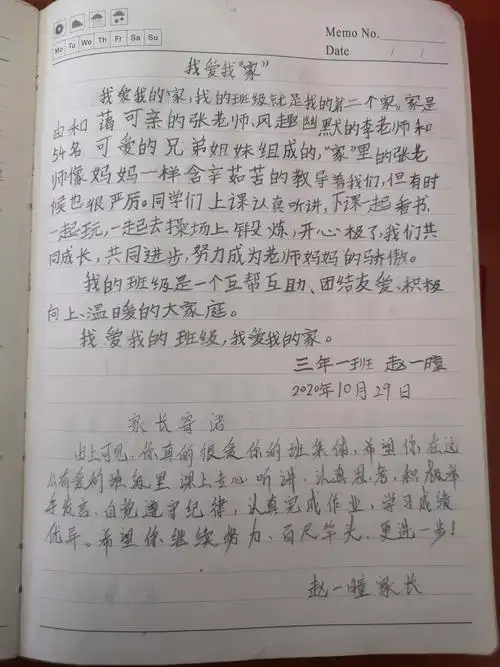 Memo No.
Mo Tu We Th Fr Sa Su
Date / /
我爱我"家"
我爱我的"家,我的班级就是我的第二个家。家是
由和蔼可亲的张老师、风趣幽默的李老师和
54名可爱的兄弟姐妹组成的,"家"里的张老
师像妈妈一样含辛茹苦的教导着我们,但有时
候也很严厉。同学们上课认真听讲,下课一起看书、
一起玩,一起去操场上锻炼,开心极了,我们共
同成长,共同进步,努力成为老师妈妈的骄傲。
我的班级是一个互帮互助、团结友爱、积极
向上、温暖的大家庭。
我爱我的班级,我爱我的家。
三年一班 赵一曈
2020年10月29日
家长寄语
由上可见,你真的很爱你的班集体,希望你在这
么有爱的班级里课上专心听讲,认真思考,积极举
手发言、自觉遵守纪律,认真完成作业,学习成绩
优异。希望你继续努力、百尺竿头、更进一步!
赵一曈家长